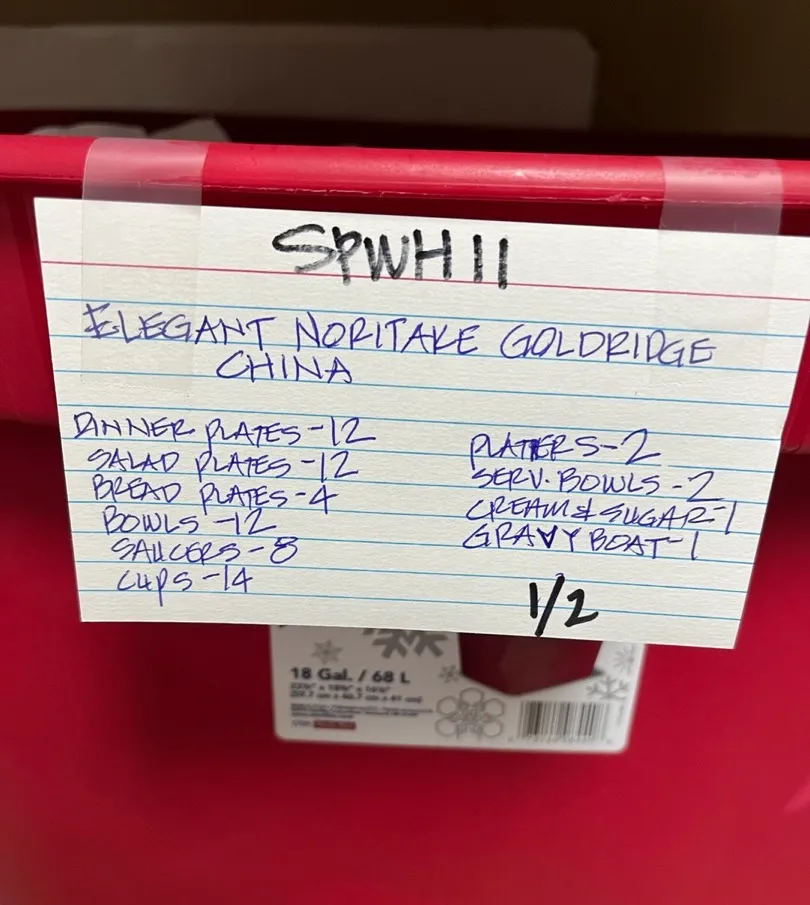 SPWH11
ELEGANT NORITAKE GOLDRIDGE
CHINA
DINNER PLATES-12
SALAD PLATES-12
BREAD PLATES-4
BOWLS-12
SAUCERS-8
CUPS-14
PLATTERS-2
SERV. BOWLS-2
CREAM & SUGAR-1
GRAVY BOAT-1
1/2
18 Gal. / 68 L